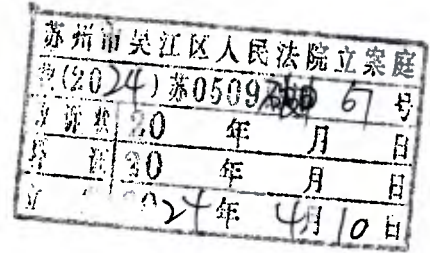 苏州市吴江区人民法院立案庭
(2024)苏0509破申67号
20 年 月 日
20 年 月 日
立 2024年4月10日